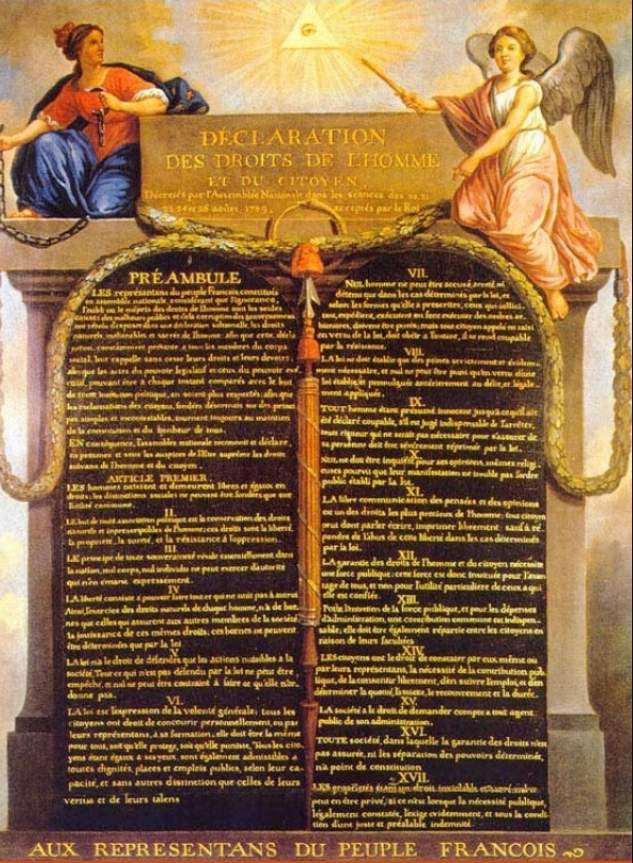 DÉCLARATION
DES DROITS DE L'HOMME
ET DU CITOYEN,
Décretés par l'Assemblée Nationale dans les séances des 20, 21
23, 24 et 26 août 1789, acceptés par le Roi
PRÉAMBULE
LES représentans du peuple François, constitués
en assemblée nationale, considérant que l'ignorance,
l'oubli ou le mépris des droits de l'homme sont les seules
causes des malheurs publics et de la corruption des gouvernemens
ont résolu d'exposer dans une déclaration solemnelle, les droits
naturels, inaliénables et sacrés de l'homme; afin que cette décla-
ration, constamment présente à tous les membres du corps
social, leur rappelle sans cesse leurs droits et leurs devoirs;
afin que les actes du pouvoir législatif et ceux du pouvoir exé-
cutif, pouvant être à chaque instant comparés avec le but
de toute institution politique, en soient plus respectés; afin que
les réclamations des citoyens, fondées désormais sur des principes
simples et incontestables, tournent toujours au maintien
de la constitution et du bonheur de tous.
EN conséquence, l'assemblée nationale reconnoît et déclare,
en présence et sous les auspices de l'Être suprême les droits
suivans de l'homme et du citoyen.
ARTICLE PREMIER.
LES hommes naissent et demeurent libres et égaux en
droits; les distinctions sociales ne peuvent être fondées que sur
l'utilité commune.
II.
LE but de toute association politique est la conservation des droits
naturels et imprescriptibles de l'homme; ces droits sont la liberté,
la propriété, la sureté, et la résistance à l'oppression.
III.
LE principe de toute souveraineté réside essentiellement dans
la nation, nul corps, nul individu ne peut exercer d'autorité
qui n'en émane expressement.
IV.
LA liberté consiste à pouvoir faire tout ce qui ne nuit pas à autrui
Ainsi, l'exercice des droits naturels de chaque homme, n'a de bor-
nes que celles qui assurent aux autres membres de la société
la jouissance de ces mêmes droits; ces bornes ne peuvent
être déterminées que par la loi
V.
LA loi n'a le droit de défendre que les actions nuisibles à la
société. Tout ce qui n'est pas défendu par la loi ne peut être
empêché, et nul ne peut être contraint à faire ce qu'elle n'or-
donne pas.
VI.
LA loi est l'expression de la volonté générale; tous les
citoyens ont droit de concourir personnellement, ou par
leurs représentans, à sa formation; elle doit être la même
pour tous, soit qu'elle protege, soit qu'elle punisse. Tous les cito-
yens étant égaux à ses yeux, sont également admissibles à
toutes dignités, places et emplois publics, selon leur ca-
pacité, et sans autres distinction que celles de leurs
vertus et de leurs talens
VII.
NUL homme ne peut être accusé, arrêté, ni
détenu que dans les cas déterminés par la loi, et
selon les formes qu'elle a prescrites, ceux qui sollici-
tent, expédient, exécutent ou font exécuter des ordres ar-
bitraires, doivent être punis; mais tout citoyen appelé ou saisi
en vertu de la loi, doit obéir à l'instant; il se rend coupable
par la résistance.
VIII.
LA loi ne doit établir que des peines strictement et évidem-
ment nécessaire, et nul ne peut être puni qu'en vertu d'une
loi établie et promulguée antérieurement au délit, et légale-
ment appliquée.
IX.
TOUT homme étant présumé innocent jusqu'à ce qu'il ait
été déclaré coupable, s'il est jugé indispensable de l'arrêter,
toute rigueur qui ne serait pas nécessaire pour s'assurer de
sa personne doit être sévèrement réprimée par la loi.
X.
NUL ne doit être inquiété pour ses opinions, mêmes religi-
euses pourvu que leur manifestation ne trouble pas l'ordre
public établi par la loi.
XI.
LA libre communication des pensées et des opinions
est un des droits les plus precieux de l'homme: tout citoyen
peut donc parler, écrire, imprimer librement: sauf à ré-
pondre de l'abus de cette liberté dans les cas déterminés
par la loi.
XII.
LA garantie des droits de l'homme et du citoyen nécessite
une force publique: cette force est donc instituée pour l'avan-
tage de tous, et non pour l'utilité particuliere de ceux à qui
elle est confiée.
XIII.
Pour l'entretien de la force publique, et pour les dépenses
d'administration, une contribution commune est indispen-
sable; elle doit être également répartie entre les citoyens en
raison de leurs facultées
XIV.
LES citoyens ont le droit de constater par eux même ou
par leurs représentans, la nécessité de la contribution pub-
lique, de la consentir librement, d'en suivre l'emploi, et d'en
déterminer la quotité, l'assiette, le recouvrement et la durée.
XV.
LA société a le droit de demander compte à tout agent
public de son administration.
XVI.
TOUTE société, dans laquelle la garantie des droits n'est
pas assurée, ni les séparation des pouvoirs déterminée,
n'a point de constitution
XVII.
LES propriétés étant un droit inviolable et sacré, nul ne
peut en être privé, si ce n'est lorsque la nécessité publique,
légalement constatée, l'exige évidemment, et sous la condi-
tion d'une juste et préalable indemnité.
AUX REPRESENTANS DU PEUPLE FRANCOIS